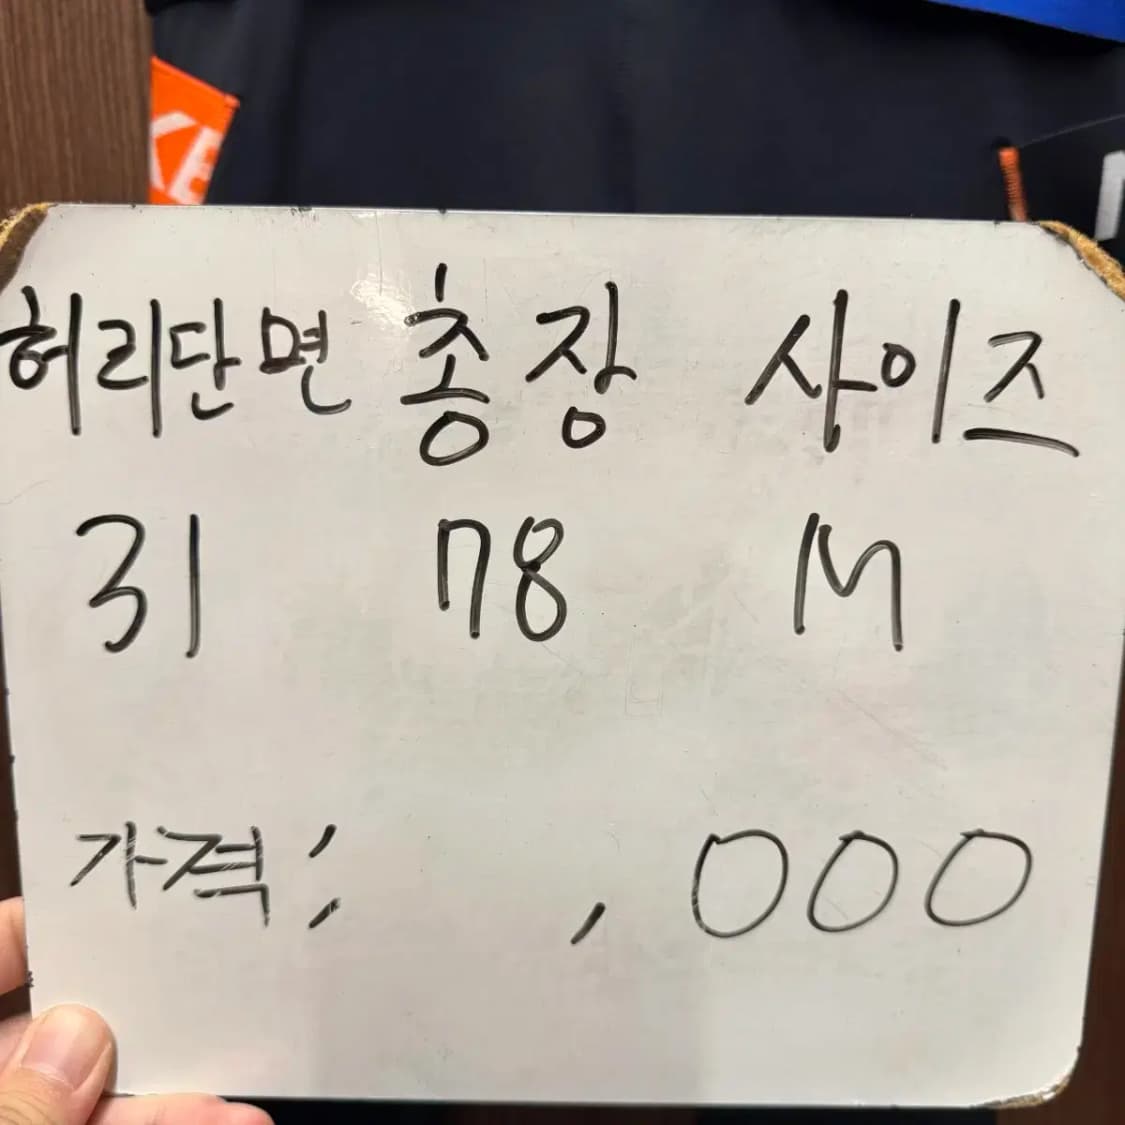 KE
허리단면 총장 사이즈
31 78 M
가격: ,000